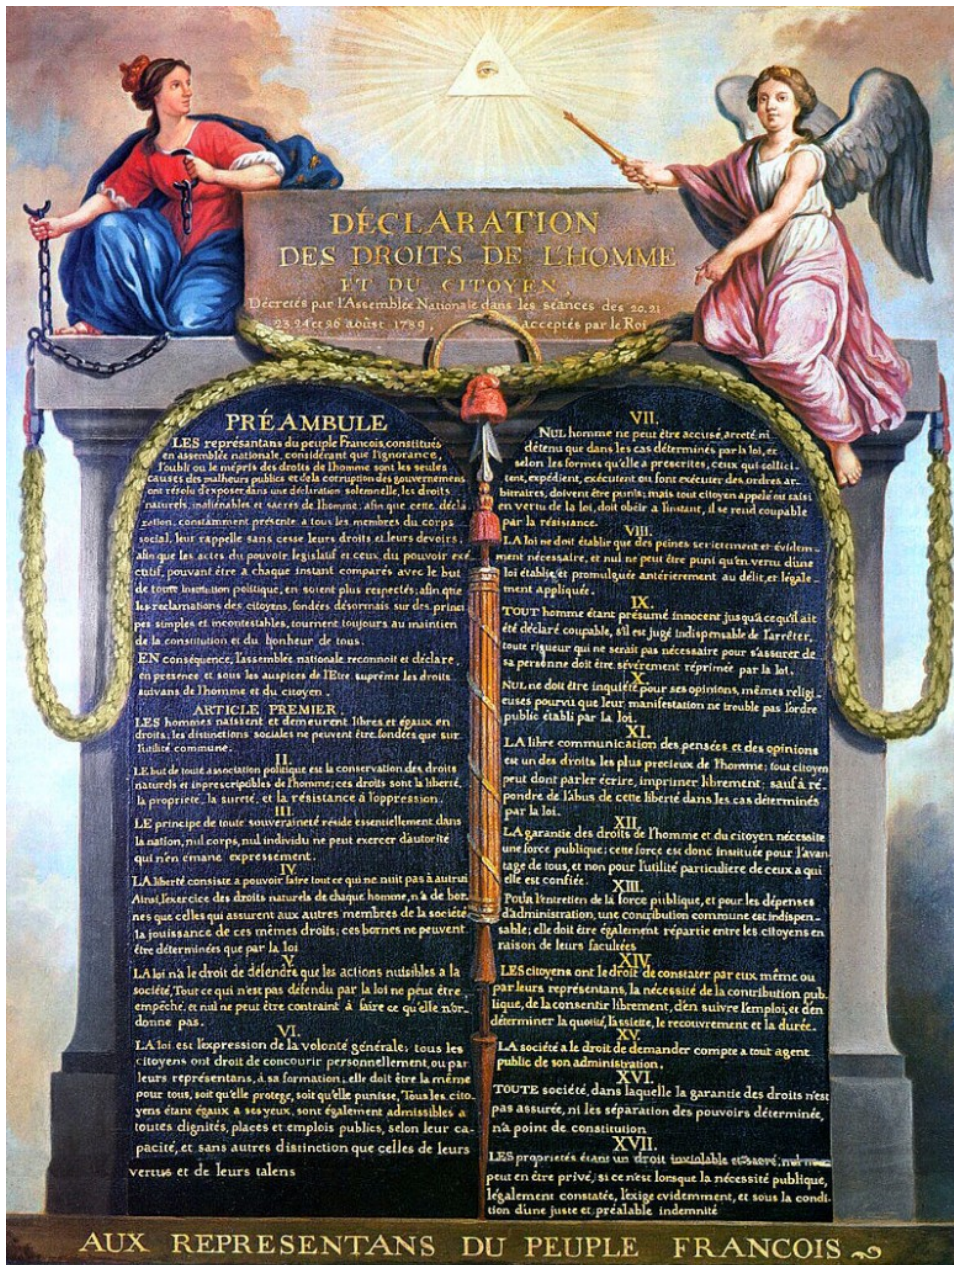 DÉCLARATION
DES DROITS DE L'HOMME
ET DU CITOYEN,
Décretés par l'Assemblée Nationale dans les séances des 20.21
23.24 et 26 aoûst 1789, acceptés par le Roi
PRÉAMBULE
LES représantans du peuple François, constitués
en assemblée nationale, considérant que l'ignorance,
l'oubli ou le mépris des droits de l'homme sont les seules
causes des malheurs publics et de la corruption des gouvernemens
ont résolu d'exposer dans une déclaration solemnelle, les droits
naturels, inaliénables et sacrés de l'homme; afin que cette décla
ration, constamment présente a tous les membres du corps
social, leur rappelle sans cesse leurs droits et leurs devoirs,
afin que les actes du pouvoir legislatif et ceux du pouvoir exé
cutif, pouvant être a chaque instant comparés avec le but
de toute institution politique, en soient plus respectés; afin que
les reclamations des citoyens, fondées désormais sur des princi
pes simples et incontestables, tournent toujours au maintien
de la constitution et du bonheur de tous.
EN conséquence, l'assemblée nationale reconnoit et déclare,
en presence et sous les auspices de l'Etre suprême les droits
suivans de l'homme et du citoyen.
ARTICLE PREMIER.
LES hommes naissent et demeurent libres et égaux en
droits; les distinctions sociales ne peuvent être fondées que sur
l'utilité commune.
II.
LE but de toute association politique est la conservation des droits
naturels et inprescriptibles de l'homme; ces droits sont la liberté,
la propriete, la sureté, et la résistance à l'oppression.
III.
LE principe de toute souveraineté réside essentiellement dans
la nation, nul corps, nul individu ne peut exercer d'autorité
qui n'en émane expressement.
IV.
LA liberté consiste a pouvoir faire tout ce qui ne nuit pas à autrui
Ainsi, l'exercice des droits naturels de chaque homme, n'a de bor-
nes que celles qui assurent aux autres membres de la société
la jouissance de ces mêmes droits; ces bornes ne peuvent
être déterminées que par la loi
V.
LA loi n'a le droit de défendre que les actions nuisibles a la
société, Tout ce qui n'est pas défendu par la loi ne peut être
empêche, et nul ne peut être contraint à faire ce qu'elle n'or-
donne pas.
VI.
LA loi est l'expression de la volonté générale; tous les
citoyens ont droit de concourir personnellement, ou par
leurs représentans, à sa formation; elle doit être la même
pour tous, soit qu'elle protege, soit qu'elle punisse, Tous les cito-
yens étant égaux a ses yeux, sont également admissibles a
toutes dignités, places et emplois publics, selon leur ca-
pacité, et sans autres distinction que celles de leurs
vertus et de leurs talens
VII.
NUL homme ne peut être accusé, arreté, ni
détenu que dans les cas déterminés par la loi, et
selon les formes qu'elle a prescrites, ceux qui sollici-
tent, expédient, exécutent ou font exécuter des ordres ar-
bitraires, doivent être punis; mais tout citoyen appelé ou saisi
en vertu de la loi, doit obéir a l'instant, il se rend coupable
par la résistance.
VIII.
LA loi ne doit établir que des peines strictement et évidem-
ment nécessaire, et nul ne peut être puni qu'en vertu d'une
loi établie, et promulguée antérierement au délit, et légale-
ment appliquée.
IX.
TOUT homme étant présumé innocent jusqu'a ce qu'il ait
été déclaré coupable, s'il est jugé indispensable de l'arrêter,
toute rigueur qui ne serait pas nécessaire pour s'assurer de
sa personne doit être sévèrement réprimée par la loi.
X.
NUL ne doit être inquiété pour ses opinions, mêmes religi-
euses pourvu que leur manifestation ne trouble pas l'ordre
public établi par la loi.
XI.
LA libre communication des pensées et des opinions
est un des droits les plus precieux de l'homme; tout citoyen
peut dont parler écrire, imprimer librement; sauf à ré-
pondre de l'abus de cette liberté dans les cas déterminés
par la loi.
XII.
LA garantie des droits de l'homme et du citoyen nécessite
une force publique; cette force est donc instituée pour l'avan-
tage de tous, et non pour l'utilité particuliere de ceux a qui
elle est confiée.
XIII.
POUR l'entretien de la force publique, et pour les dépenses
d'administration, une contribution commune est indispen-
sable; elle doit être également répartie entre les citoyens en
raison de leurs facultées
XIV.
LES citoyens ont le droit de constater par eux même ou
par leurs représentans, la nécessité de la contribution pub-
lique, de la consentir librement, d'en suivre l'emploi, et d'en
déterminer la quotité, l'assiette, le recouvrement et la durée.
XV.
LA société a le droit de demander compte a tout agent
public de son administration.
XVI.
TOUTE société, dans laquelle la garantie des droits n'est
pas assurée, ni les séparation des pouvoirs déterminée,
n'a point de constitution
XVII.
LES proprietés étant un droit inviolable et sacré, nul ne
peut en être privé, si ce n'est lorsque la nécessité publique,
légalement constatée, l'exige evidemment, et sous la condi-
tion d'une juste et préalable indemnité
AUX REPRESENTANS DU PEUPLE FRANCOIS